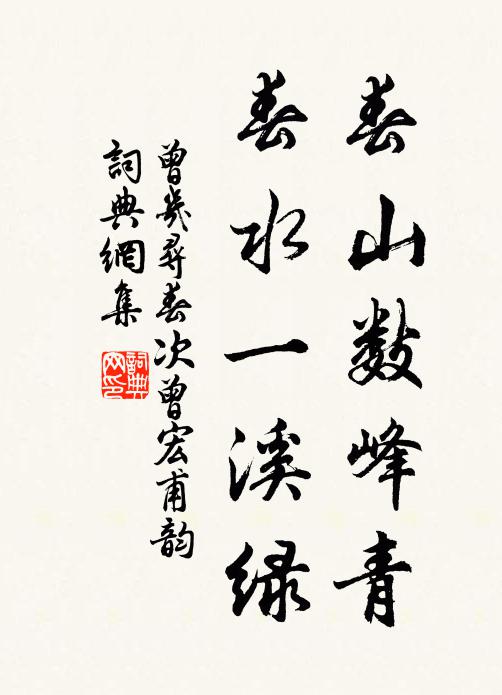 春山数峰青
春水一溪绿
曾幾尋春次曾宏甫韵
詞典網集
詞典网印